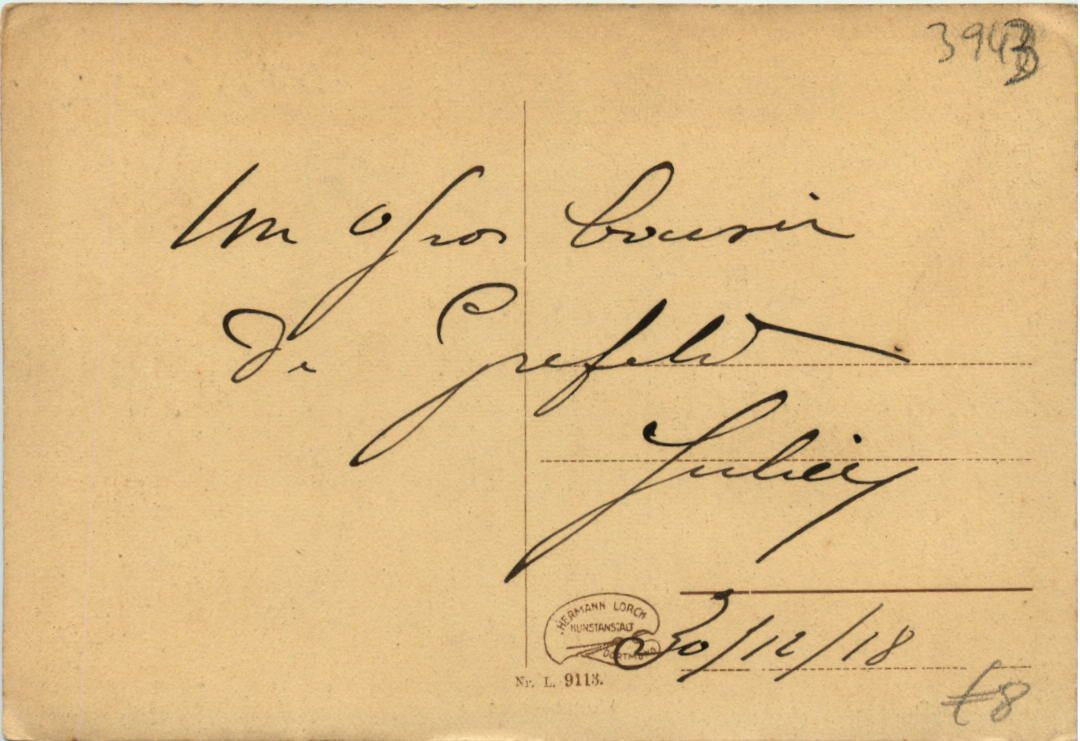 Un Gros Cousin
De Grefeld
Julien
30/12/18
HERMANN LORCH
KUNSTANSTALT
DORTMUND
Nr. L. 9113.
€8